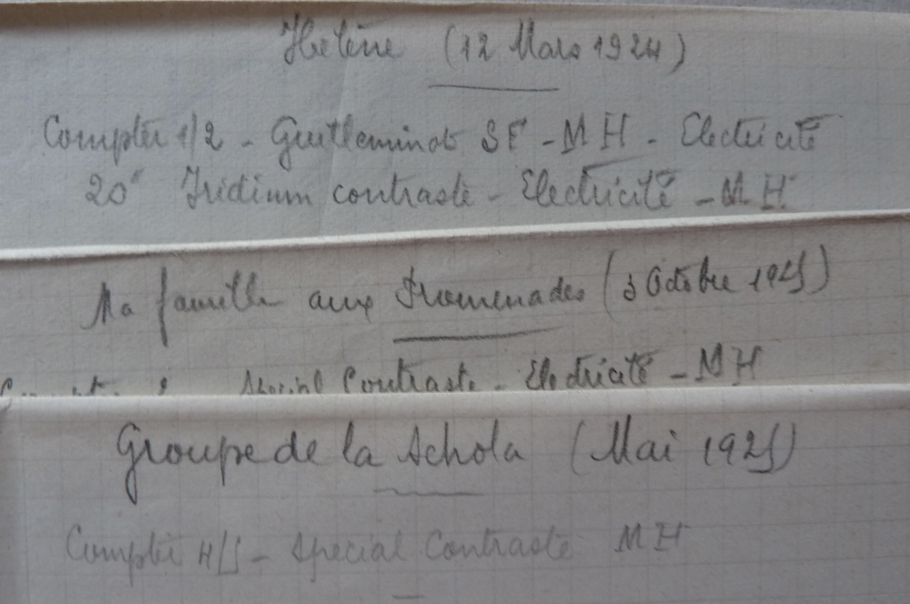 Hélène (12 Mars 1924)
Compter 1/2 - Guilleminot SF - MH - Electricité
20" Iridium contraste - Electricité - MH
Ma famille aux Promenades (3 Octobre 1925)
Special Contraste - Electricité - MH
Groupe de la Schola (Mai 1925)
Compter 4/5 - Special Contraste MH